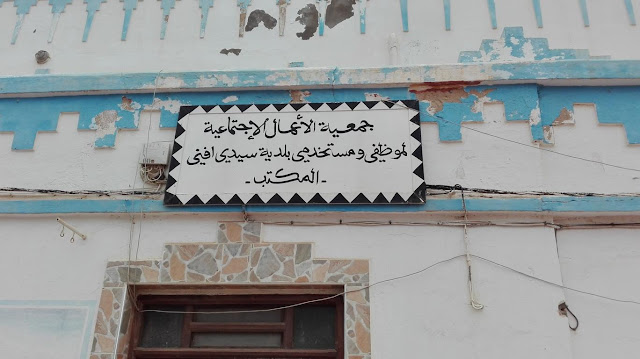 جمعية الأعمال الإجتماعية
لموظفي ومستخدمي بلدية سيدي افني
- المكتب -